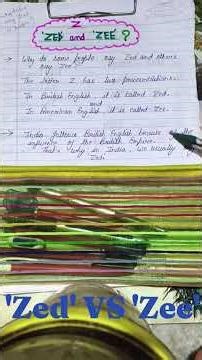 Z
'ZED' and 'ZEE' ?
→ Why do some people say Zed and others
say Zee?
The letter Z has two pronunciations.
In British English it is called Zed.
and
In American English it is called Zee.
→ India follows British English because the
influence of the British Empire.
That's why in India, we usually
Zed.
'Zed' VS 'Zee'